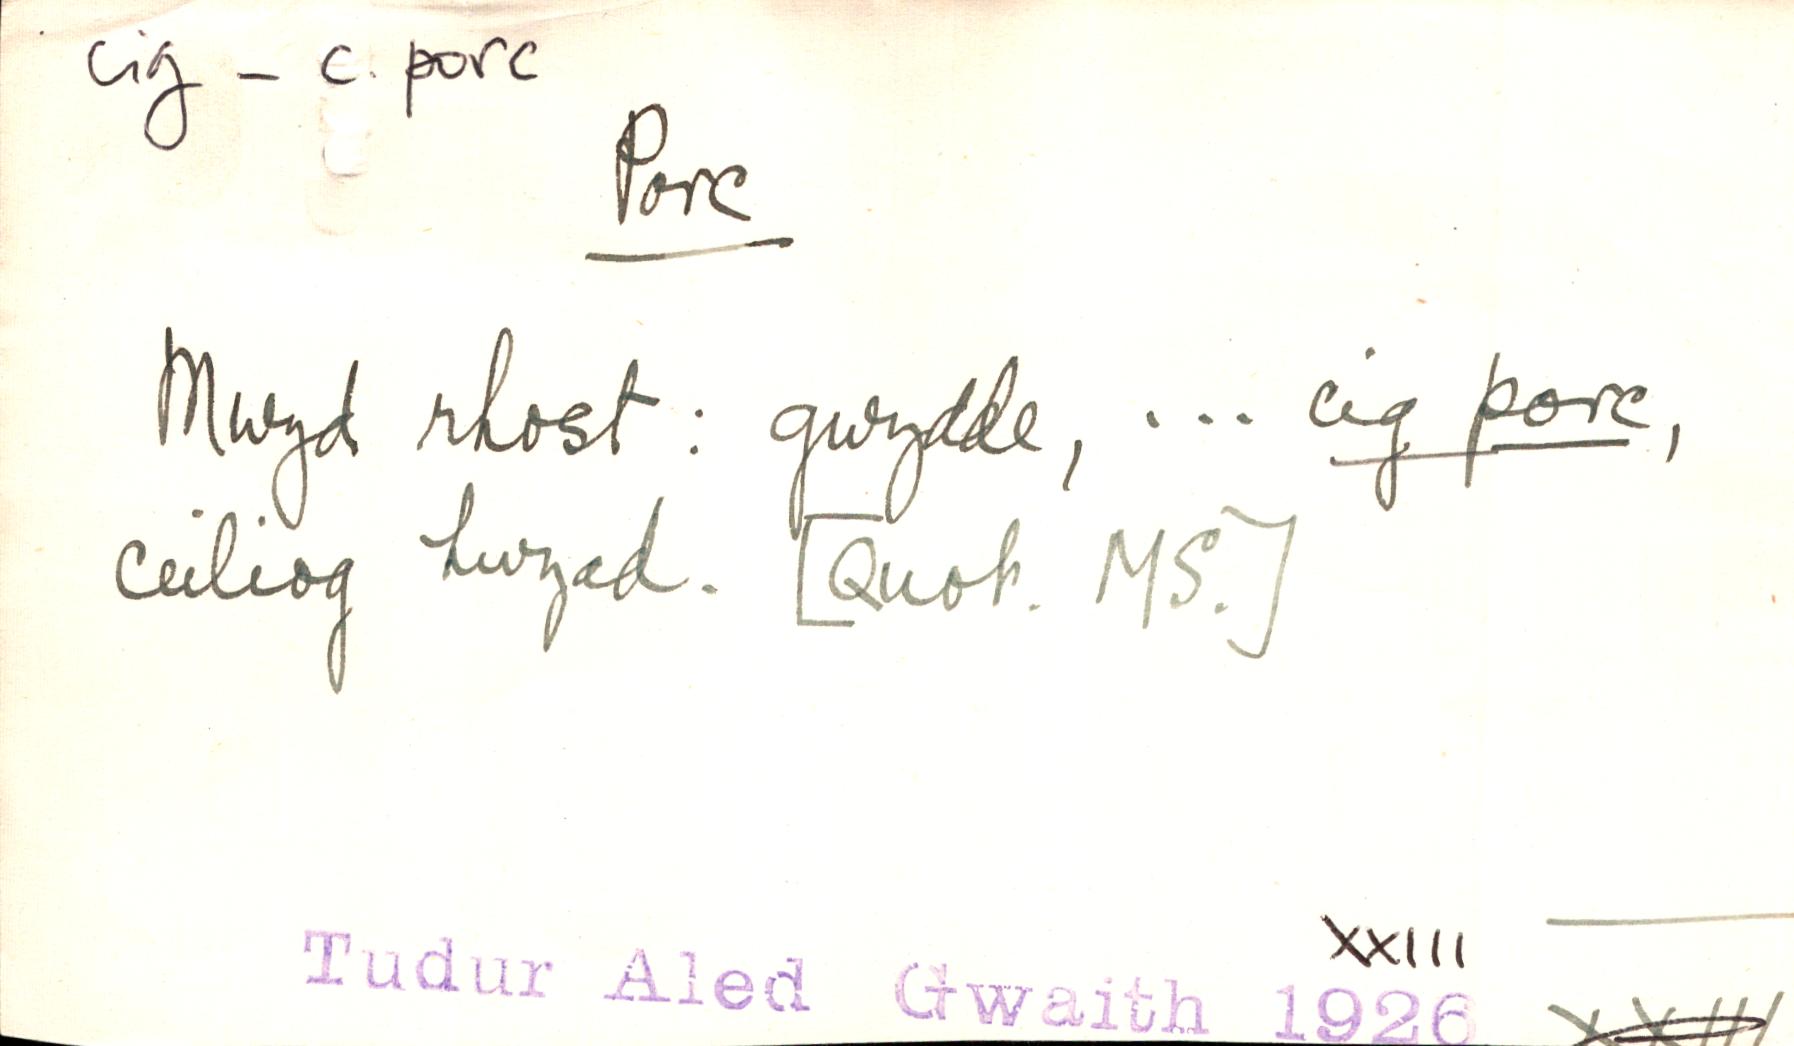 cig – c. porc
Porc
Mwyd rhost: gwydde, ... cig porc,
ceiliog hwyad. [Quot. MS.]
xxiii
Tudur Aled Gwaith 1926
xxiii